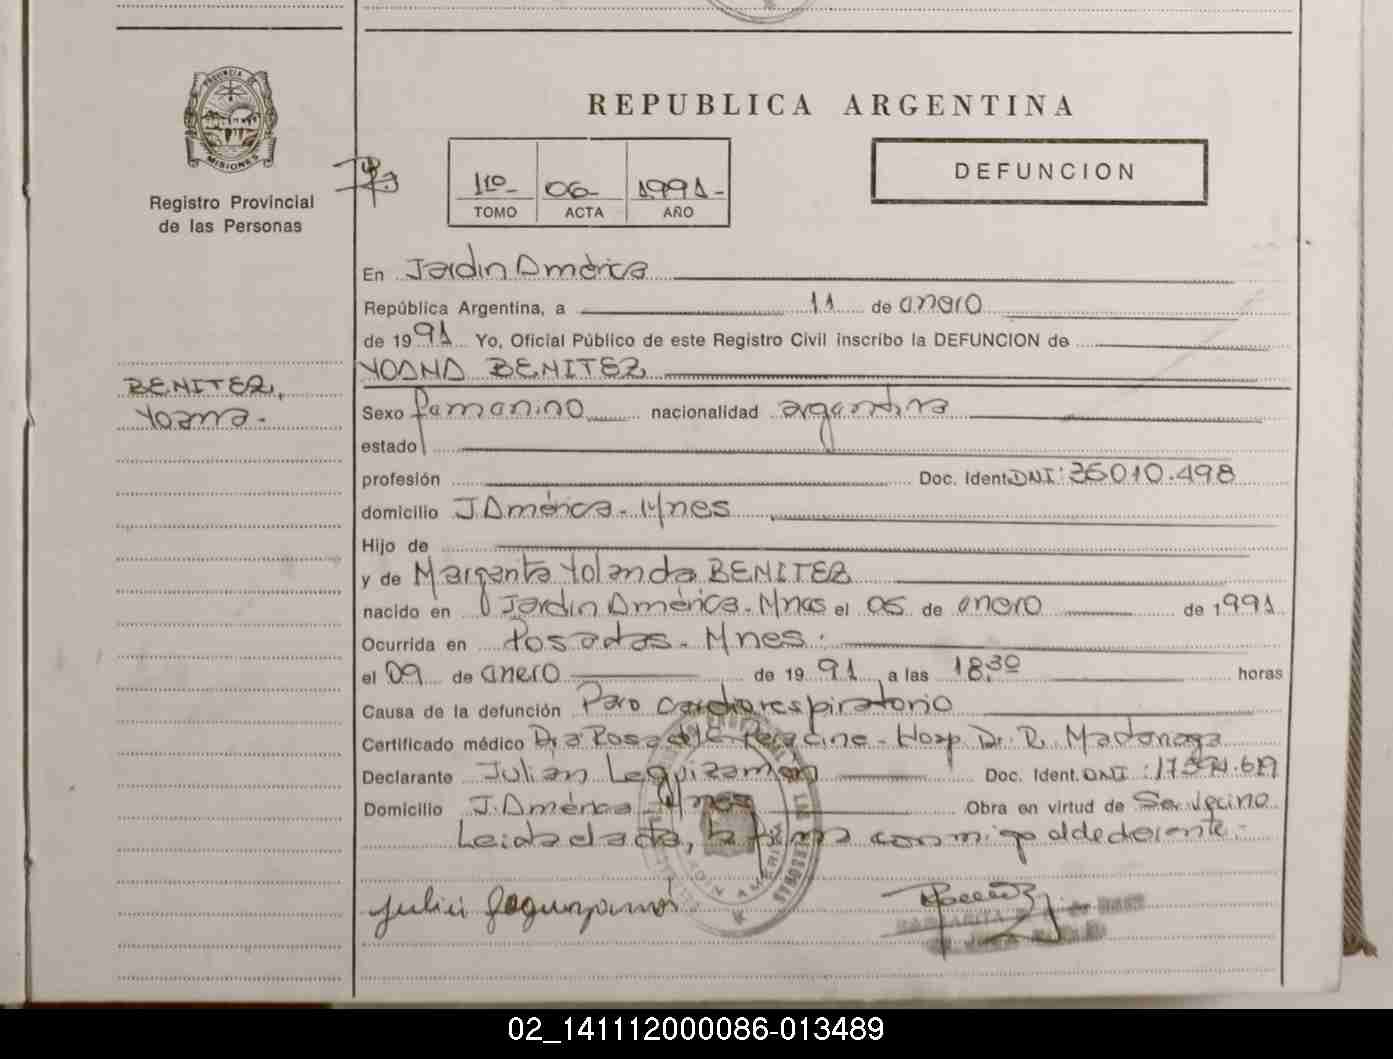 PROVINCIA DE
MISIONES
Registro Provincial
de las Personas
BENITEZ,
Yoana.-
REPUBLICA ARGENTINA
DEFUNCION
1ro- 06- 1991-
TOMO ACTA AÑO
En Jardin América
República Argentina, a 11 de enero
de 1991 Yo, Oficial Público de este Registro Civil inscribo la DEFUNCION de
YOANA BENITEZ
Sexo femenino nacionalidad argentina
estado
profesión Doc. Ident. DNI: 36010.498
domicilio J. América - Mnes
Hijo de
y de Margarita Yolanda BENITEZ
nacido en Jardin América - Mnes el 05 de enero de 1991
Ocurrida en Posadas - Mnes.
el 09 de enero de 1991 a las 18,30 horas
Causa de la defunción Paro cardiorespiratorio
Certificado médico Dra Rosa - Hosp. Dr. R. Madariaga
Declarante Julian Leguizamon Doc. Ident. DNI: 17.594.619
Domicilio J. América Mnes Obra en virtud de Ser Vecino
Leida el acta, la firma conmigo el declarante.-
02_141112000086-013489